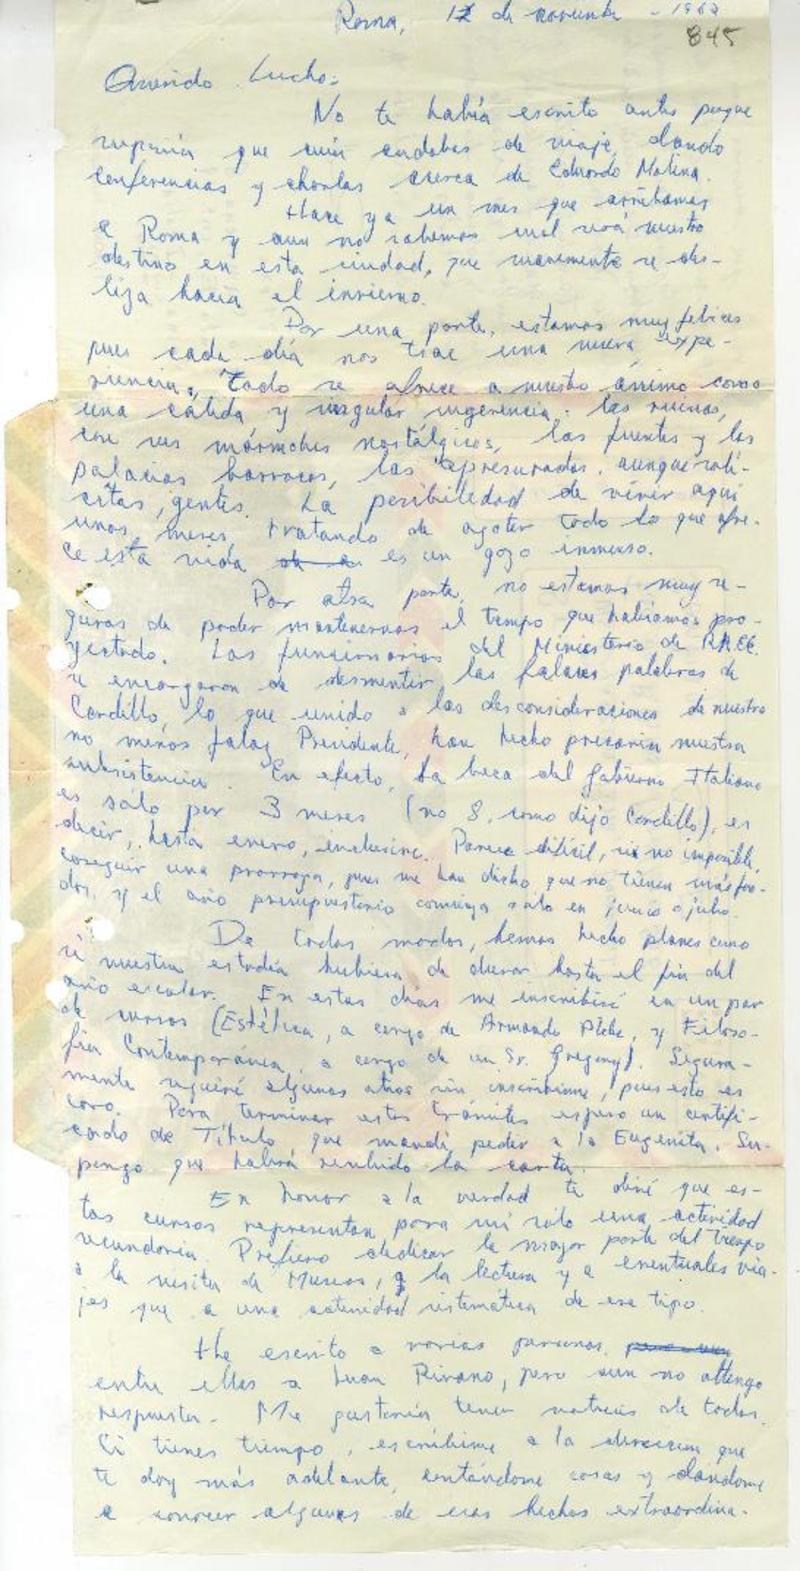 Roma, 12 de noviembre - 1962
845
Querido Lucho:
No te había escrito antes porque
suponía que aún andabas de viaje, dando
conferencias y charlas acerca de Eduardo Molina.
Hace ya un mes que arribamos
a Roma y aun no sabemos cuál será nuestro
destino en esta ciudad, que suavemente se des-
liza hacia el invierno.
Por una parte, estamos muy felices
pues cada día nos trae una nueva expe-
riencia. Todo se ofrece a nuestro ánimo como
una cálida y singular sugerencia: las ruinas,
con sus mármoles nostálgicos, las fuentes y los
palacios barrocos, las apresuradas, aunque solí-
citas, gentes. La posibilidad de vivir aquí
unos meses, tratando de agotar todo lo que ofre-
ce esta vida es un gozo inmenso.
Por otra parte, no estamos muy se-
guros de poder mantenernos el tiempo que habíamos pro-
yectado. Los funcionarios del Ministerio de RR.EE.
se encargaron de desmentir las falaces palabras de
Cordillo, lo que unido a las desconsideraciones de nuestro
no menos falaz Presidente, han hecho precaria nuestra
subsistencia. En efecto, la beca del Gobierno Italiano
es sólo por 3 meses (no 8, como dijo Cordillo), es
decir, hasta enero, inclusive. Parece difícil, si no imposible,
conseguir una prorroga, pues me han dicho que no tienen más fon-
dos, y el año presupuestario comienza sólo en junio o julio.
De todos modos, hemos hecho planes como
si nuestra estadía hubiera de durar hasta el fin del
año escolar. En estos días me inscribiré en un par
de cursos (Estética, a cargo de Armando Plebe, y Filoso-
fía Contemporánea, a cargo de un Sr. Gregory). Segura-
mente seguiré algunos otros sin inscribirme, pues esto es
caro. Para terminar estos trámites espero un certifi-
cado de Título que mandé pedir a la Eugenita. Su-
pongo que habrá recibido la carta.
En honor a la verdad te diré que es-
tos cursos representan para mí sólo una actividad
secundaria. Prefiero dedicar la mayor parte del tiempo
a la visita de Museos, a la lectura y a eventuales via-
jes que a una actividad sistemática de ese tipo.
He escrito a varias personas,
entre ellas a Juan Rivano, pero aun no obtengo
respuesta. Me gustaría tener noticias de todos.
Si tienes tiempo, escríbime a la dirección que
te doy más adelante, contándome cosas y dándome
a conocer algunos de esos hechos extraordina-